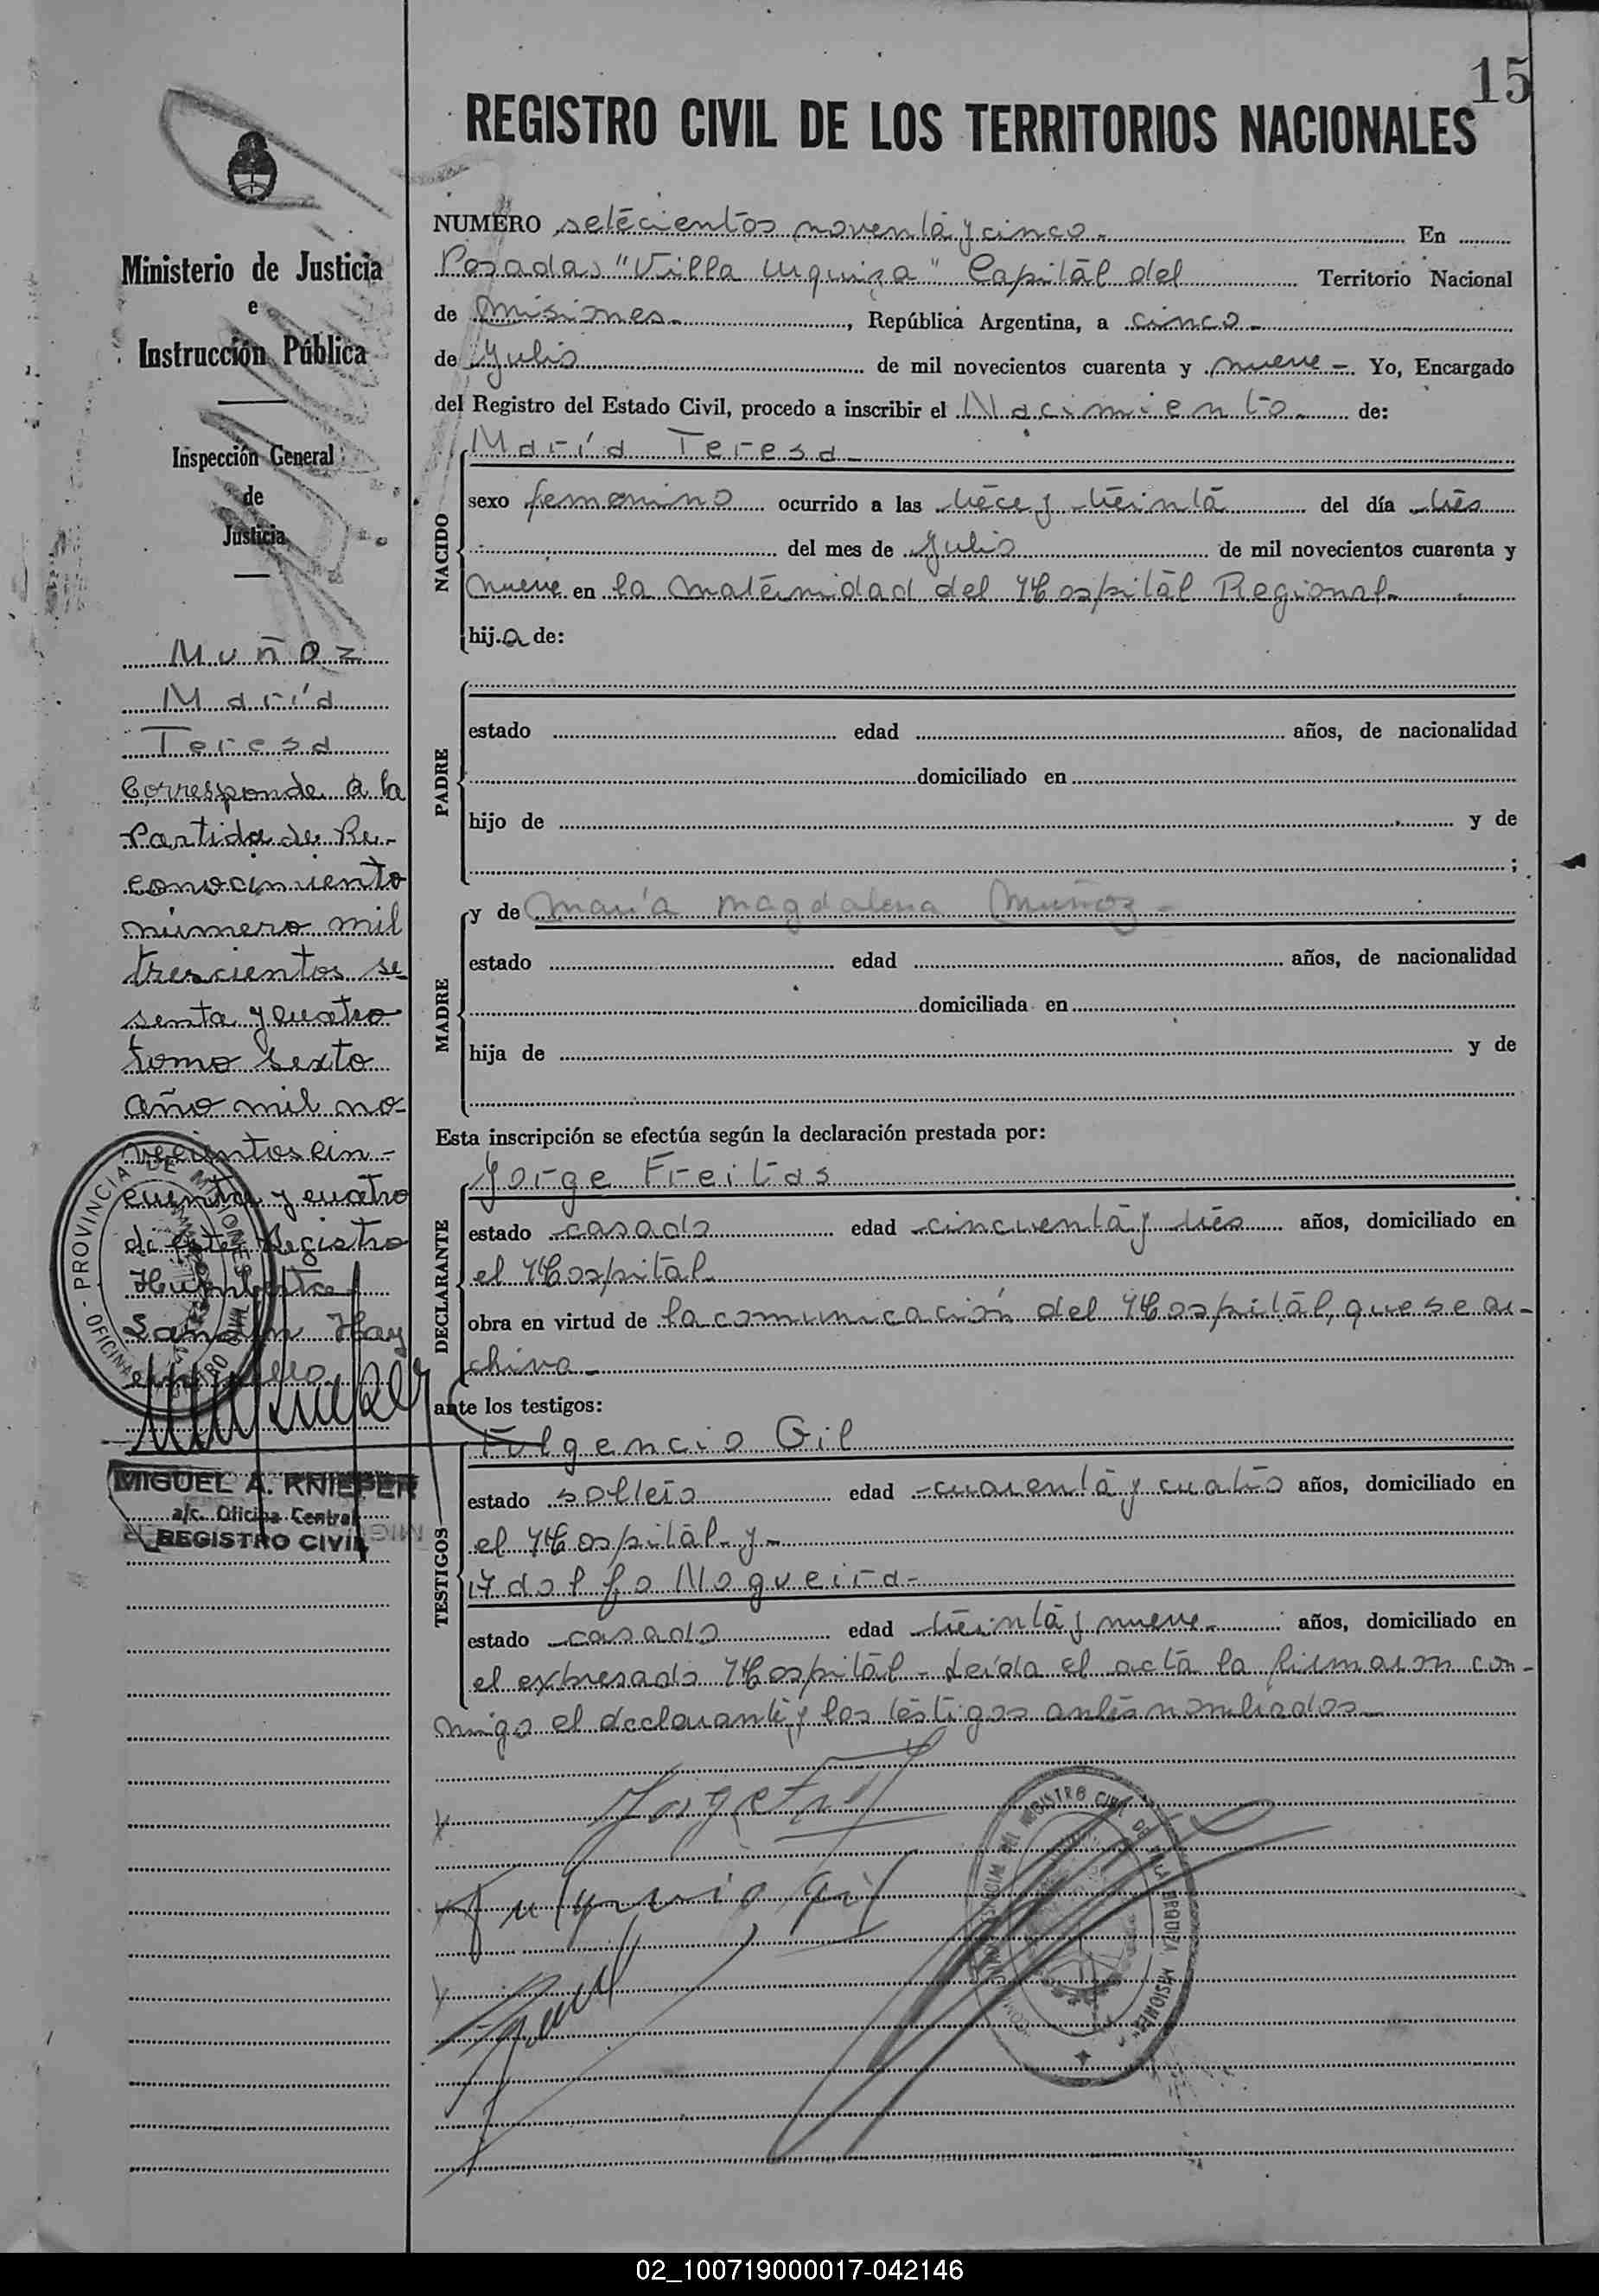 15
REGISTRO CIVIL DE LOS TERRITORIOS NACIONALES
Ministerio de Justicia
e
Instrucción Pública
Inspección General
de
Justicia
Muñoz
María
Teresa
Corresponde a la
Partida de Re-
conocimiento
número mil
trescientos se-
senta y cuatro
tomo sexto
año mil no-
vecientos cin-
cuenta y cuatro
de este Registro
Hay
sello
PROVINCIA DE MISIONES
MIGUEL A. KNIEPER
a/c. Oficina Central
REGISTRO CIVIL
NUMERO setecientos noventa y cinco.- En
Posadas "Villa Urquiza" Capital del Territorio Nacional
de Misiones.-, República Argentina, a cinco.-
de Julio de mil novecientos cuarenta y nueve.- Yo, Encargado
del Registro del Estado Civil, procedo a inscribir el Nacimiento.- de:
NACIDO
María Teresa.-
sexo femenino ocurrido a las trece y treinta del día tres
del mes de Julio de mil novecientos cuarenta y
nueve en la maternidad del Hospital Regional.-
hija de:
PADRE
estado edad años, de nacionalidad
domiciliado en
hijo de y de
;
MADRE
y de María Magdalena Muñoz-
estado edad años, de nacionalidad
domiciliada en
hija de y de
Esta inscripción se efectúa según la declaración prestada por:
DECLARANTE
Jorge Freitas
estado casado edad cincuenta y tres años, domiciliado en
el Hospital
obra en virtud de la comunicación del Hospital, que se ar-
chiva.-
ante los testigos:
TESTIGOS
Fulgencio Gil
estado soltero edad cuarenta y cuatro años, domiciliado en
el Hospital y-
Adolfo Nogueira-
estado casado edad treinta y nueve.- años, domiciliado en
el expresado Hospital - Leída el acta la firmaron con-
migo el declarante y los testigos antes nombrados.-
Fulgencio Gil
02_100719000017-042146